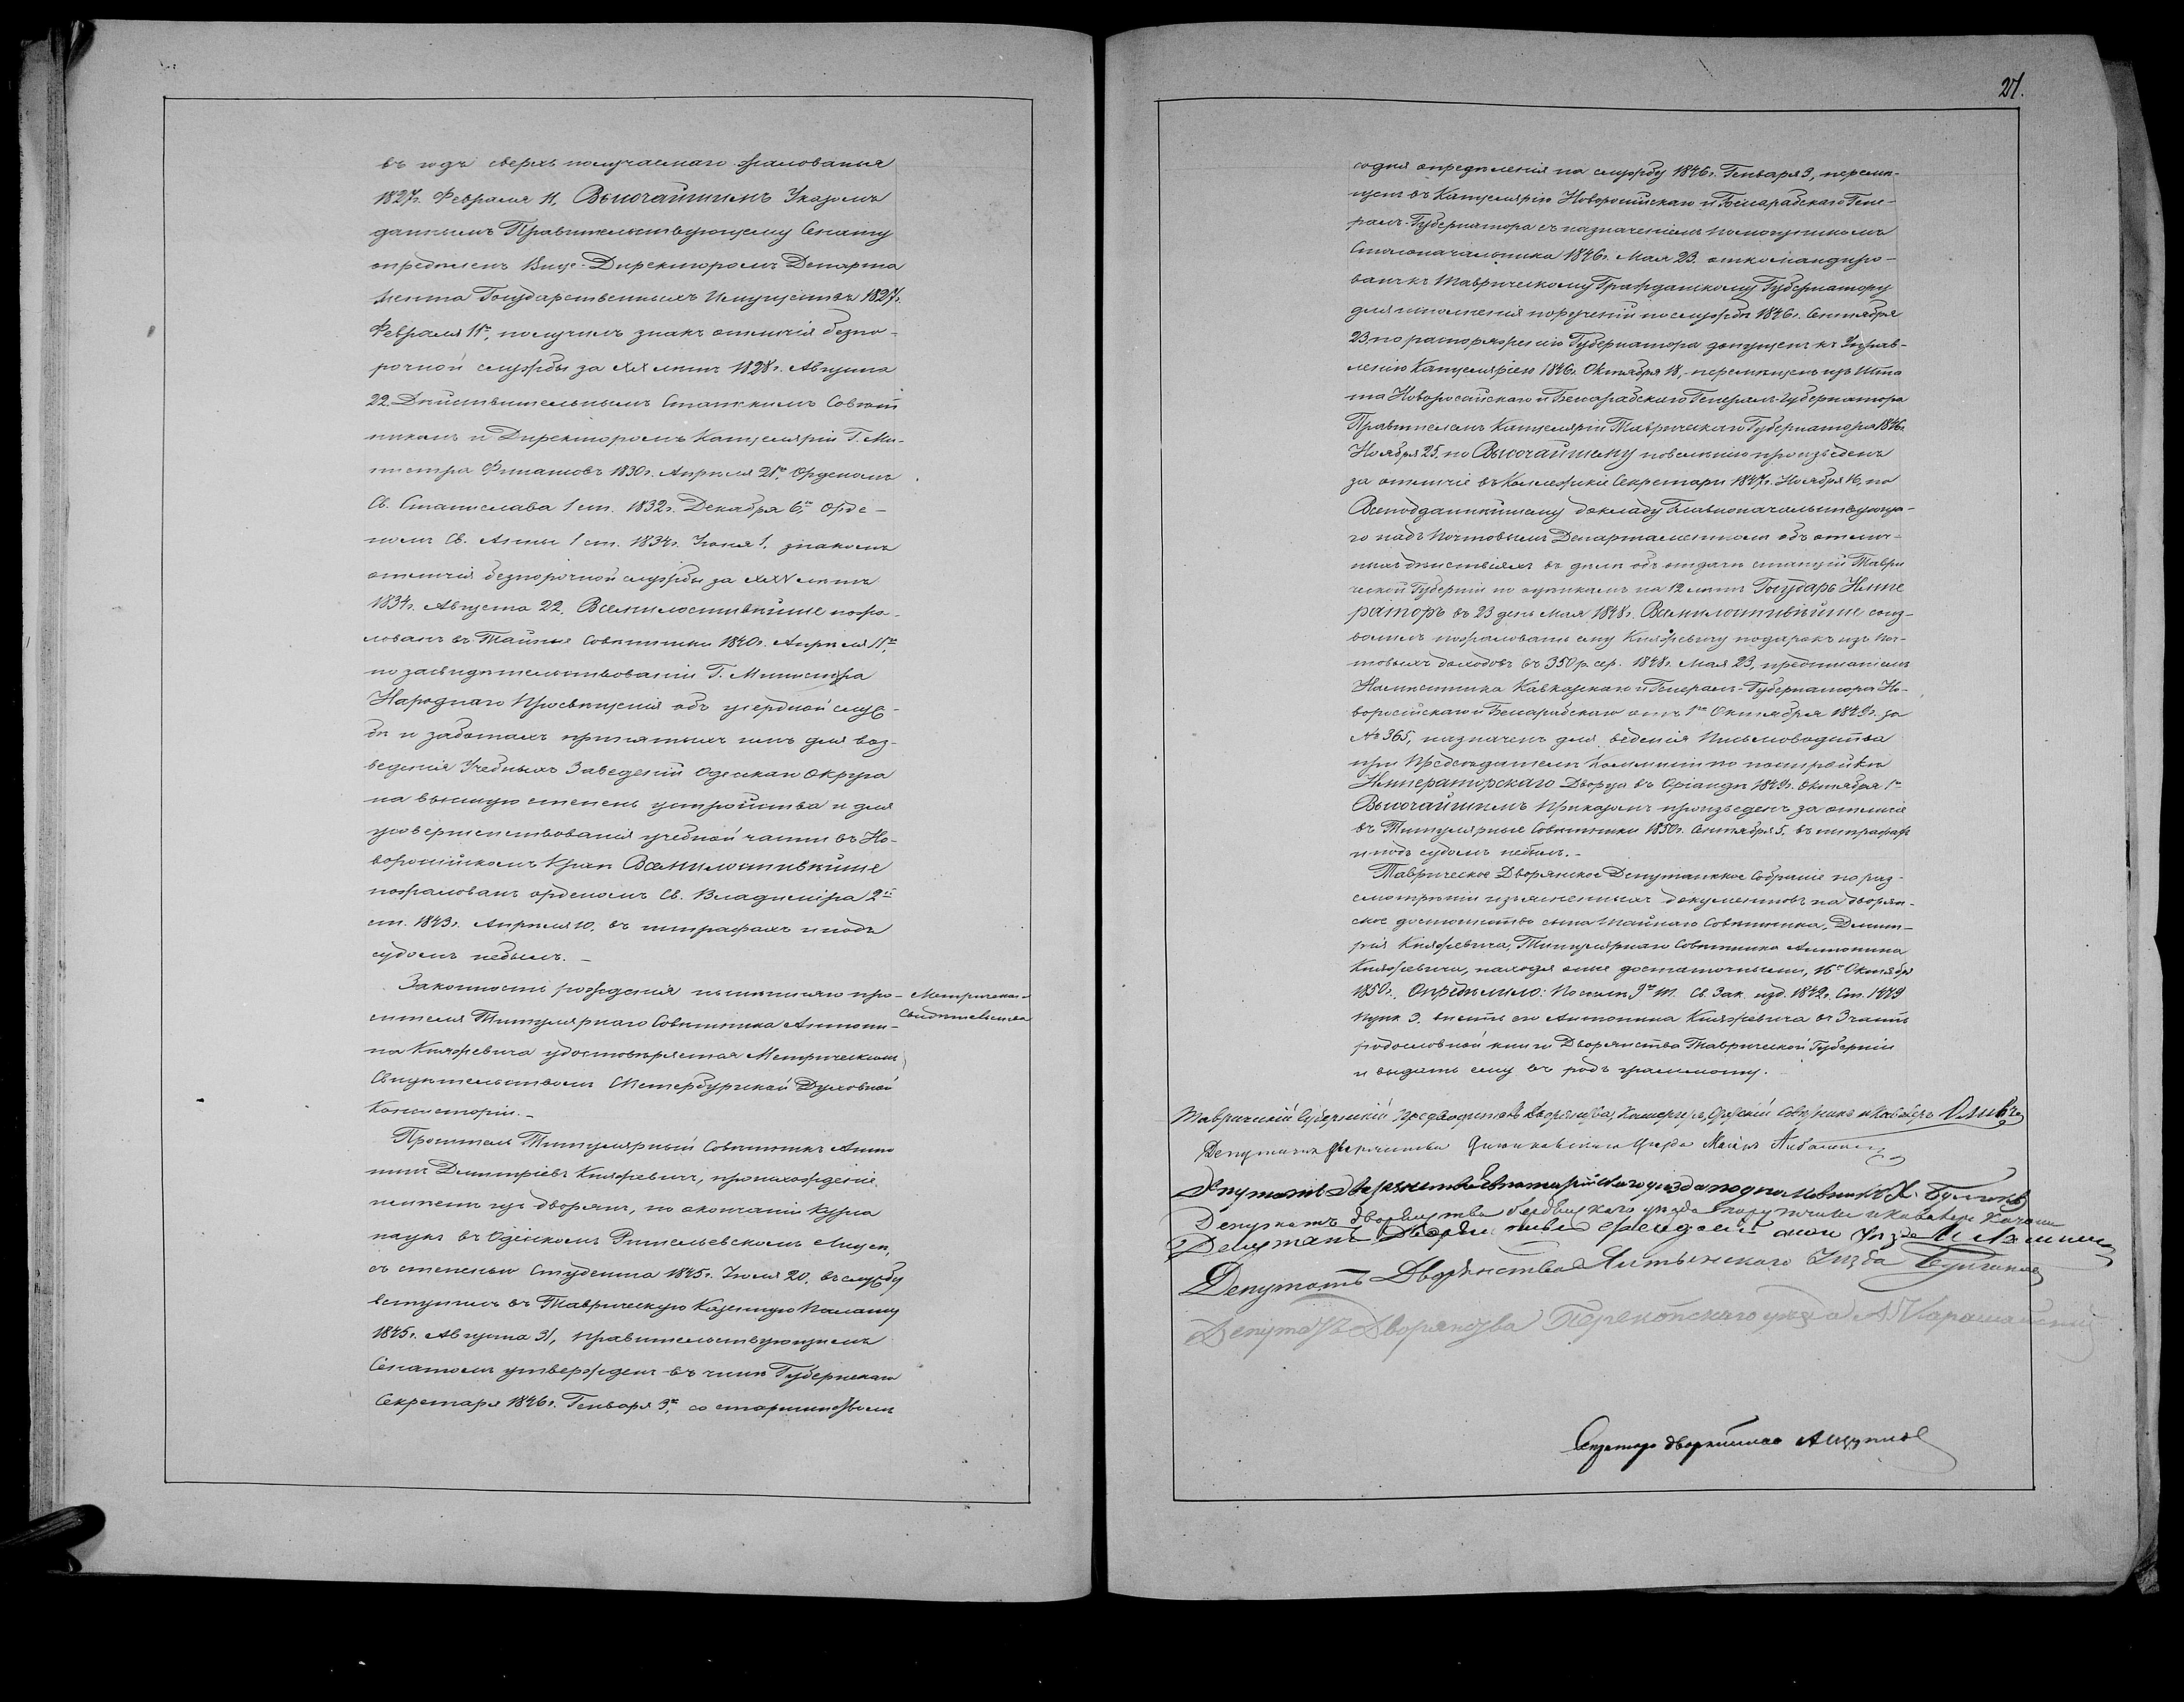 въ годъ сверхъ получаемаго жалованья
1827г. Февраля 11, Высочайшимъ Указомъ
даннымъ Правительствующему Сенату
опредѣленъ Вице-Директоромъ Департа
мента Государственныхъ Имуществъ 1827г.
Февраля 11го, получилъ знакъ отличія безпо-
рочной службы за XX лѣтъ 1828г. Августа
22. Дѣйствительнымъ Статскимъ Совѣт
никомъ и Директоромъ Канцеляріи Г. Ми-
нистра Финансовъ 1830г. Апрѣля 21го, Орденомъ
Св. Станислава 1 ст. 1832г. Декабря 6го, Орде-
номъ Св. Анны 1 ст. 1834г. Іюня 1, знакомъ
отличія безпорочной службы за XXV лѣтъ
1834г. Августа 22. Всемилостивѣйше пожа-
лованъ въ Тайные Совѣтники 1840г. Апрѣля 11го,
по засвидѣтельствованіи Г. Министра
Народнаго Просвѣщенія объ усердной служ-
бѣ и заботахъ принятыхъ имъ для воз-
веденія Учебныхъ Заведеній Одесскаго Округа
на высшую степень устройства и для
усовершенствованія учебной части въ Но-
вороссійскомъ Краѣ Всемилостивѣйше
пожалованъ орденомъ Св. Владиміра 2й
ст. 1843г. Апрѣля 10. въ штрафахъ и подъ
судомъ небылъ. –
Законность рожденія нынѣшняго про-
сителя Титулярнаго Совѣтника Антони-
на Княжевича удостовѣряется Метрическимъ
Свидѣтельствомъ СПетербургской Духовной
Консисторіи. –
Метрическое
Свидѣтельство
Проситель Титулярный Совѣтникъ Анто
нинъ Дмитріевъ Княжевичъ, происхожденіе
имѣетъ изъ дворянъ, по окончаніи Курса
наукъ въ Одесскомъ Ришельевскомъ Лицеѣ,
съ степенью Студента 1845г. Іюля 20. въ службу
вступилъ въ Таврическую Казенную Палату
1845г. Августа 31, Правительствующимъ
Сенатомъ утвержденъ въ чинѣ Губернскаго
Секретаря 1846г. Генваря 3го, со старшинствомъ
27.
со дня опредѣленія на службу 1846г. Генваря 3, перемѣ-
щенъ въ Канцелярію Новороссійскаго и Бессарабскаго Гене-
ралъ-Губернатора съ назначеніемъ помощникомъ
Столоначальника 1846г. Мая 23. откомандиро-
ванъ къ Таврическому Гражданскому Губернатору
для исполненія порученій по службѣ 1846г. Сентября
23 по распоряженію Губернатора допущенъ къ Управ-
ленію Канцеляріею 1846г. Октября 18, перемѣщенъ изъ Шта
та Новороссійскаго и Бессарабскаго Генералъ-Губернатора
Правителемъ Канцеляріи Таврическаго Губернатора 1846г.
Ноября 25, по Высочайшему повелѣнію произведенъ
за отличіе въ Коллежскіе Секретари 1847г. Ноября 16, по
Всеподданнѣйшему докладу Главноначальствующа-
го надъ Почтовымъ Департаментомъ объ отлич-
ныхъ дѣйствіяхъ въ дѣлѣ объ отдачѣ станцій Таври
ческой Губерніи по оцѣнкамъ на 12 лѣтъ Государь Импе
раторъ въ 23 день Мая 1848г. Всемилостивѣйше соиз-
волилъ пожаловать ему Княжевичу подарокъ изъ поч-
товыхъ доходовъ въ 350 р. сер. 1848г. Мая 23, предписаніемъ
Намѣстника Кавказскаго и Генералъ-Губернатора Но-
вороссійскаго и Бессарабскаго отъ 1го Октября 1849г. за
№ 365, назначенъ для веденія Письмоводства
при Предсѣдателѣ Коммисіи по постройкѣ
Императорскаго Дворца въ Оріандѣ 1849г. Октября 1го
Высочайшимъ Приказомъ произведенъ за отличіе
въ Титулярные Совѣтники 1850г. Сентября 5, въ штрафахъ
и подъ судомъ небылъ. –
Таврическое Дворянское Депутатское Собраніе по раз-
смотрѣніи изъясненныхъ документовъ на дворян-
ское достоинство сына Тайнаго Совѣтника, Дмит-
рія Княжевича, Титулярнаго Совѣтника Антонина
Княжевича, находя оные достаточными, 16го Октября
1850г. Опредѣлило: По силѣ 9го Т. Св. Зак. изд. 1842г. Ст. 1449
Пунк 3. внесть его Антонина Княжевича въ 3 часть
родословной книги Дворянства Таврической Губерніи
и выдать ему въ родъ грамоту.
Таврическій Губернскій Предводитель Дворянства, Камергеръ, Статскій Совѣтникъ и Кавалеръ
Депутатъ Дворянства Днѣпровскаго Уѣзда Маіоръ
Депутатъ Дворянства Евпаторійскаго уѣзда подполковникъ К. Булгаковъ
Депутатъ Дворянства Бердянскаго уѣзда Порутчикъ и Кавалеръ
Депутатъ Дворянства Феодосійскаго Уѣзда
Депутатъ Дворянства Ялтынскаго Уѣзда Булгаковъ
Депутатъ Дворянства Перекопскаго уѣзда А. Карашайскій
Секретарь дворянства